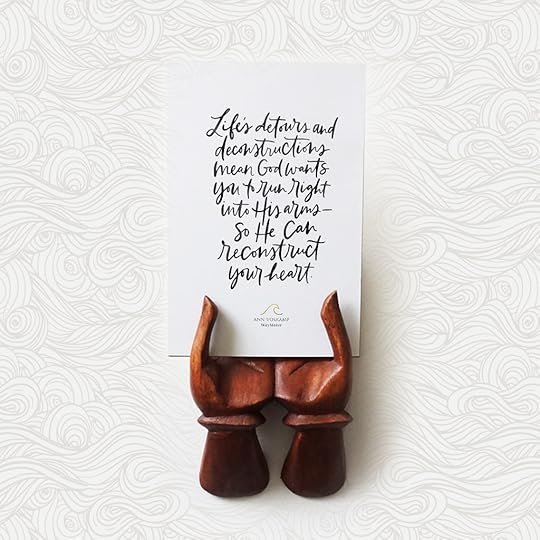 Life's detours and
deconstructions
mean God wants
you to run right
into His arms—
so He Can
reconstruct
your heart.
ANN VOSKAMP
WayMaker